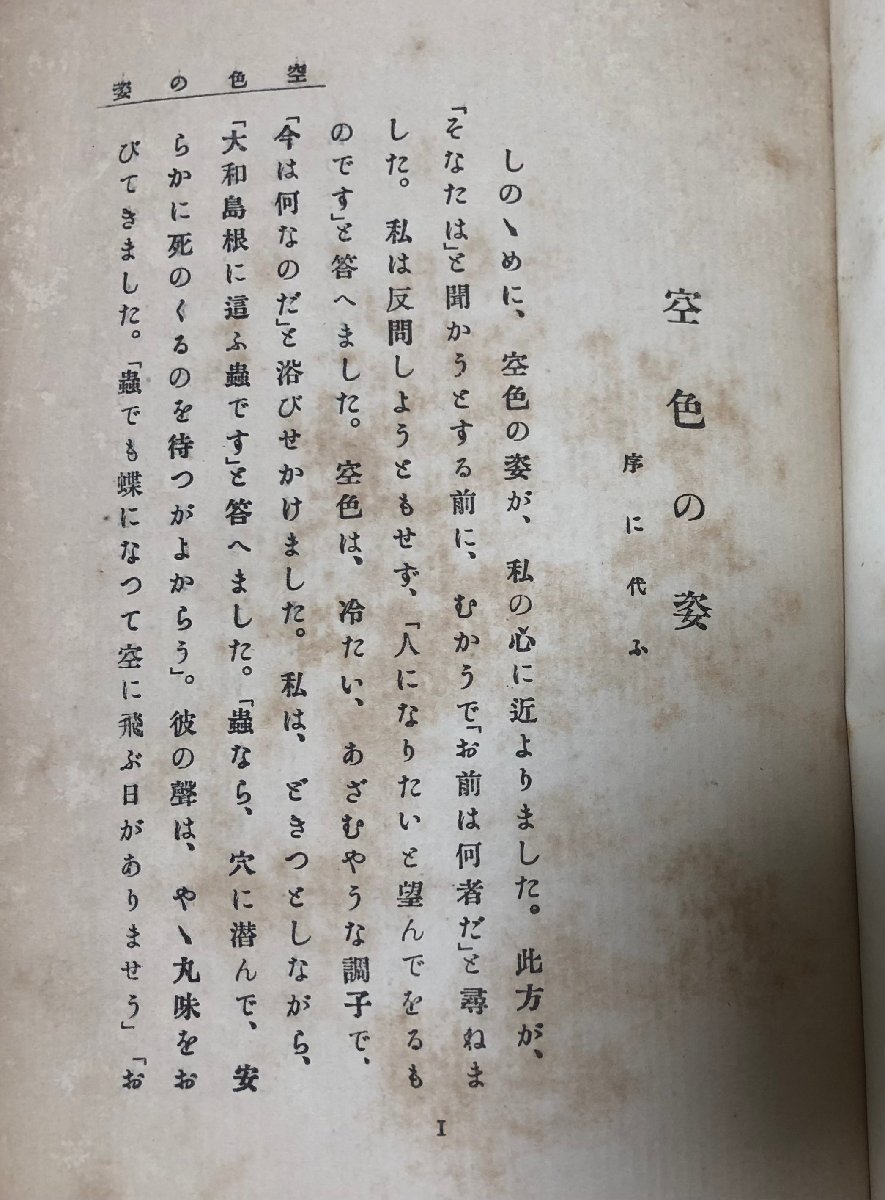 空色の姿
空色の姿
序に代ふ
しのゝめに、空色の姿が、私の心に近よりました。此方が、
「そなたは」と聞かうとする前に、むかうで「お前は何者だ」と尋ねま
した。私は反問しようともせず、「人になりたいと望んでをるも
のです」と答へました。空色は、冷たい、あざむやうな調子で、
「今は何なのだ」と浴びせかけました。私は、どきつとしながら、
「大和島根に這ふ蟲です」と答へました。「蟲なら、穴に潜んで、安
らかに死のくるのを待つがよからう」。彼の聲は、やゝ丸味をお
びてきました。「蟲でも蝶になつて空に飛ぶ日がありませう」「お
I